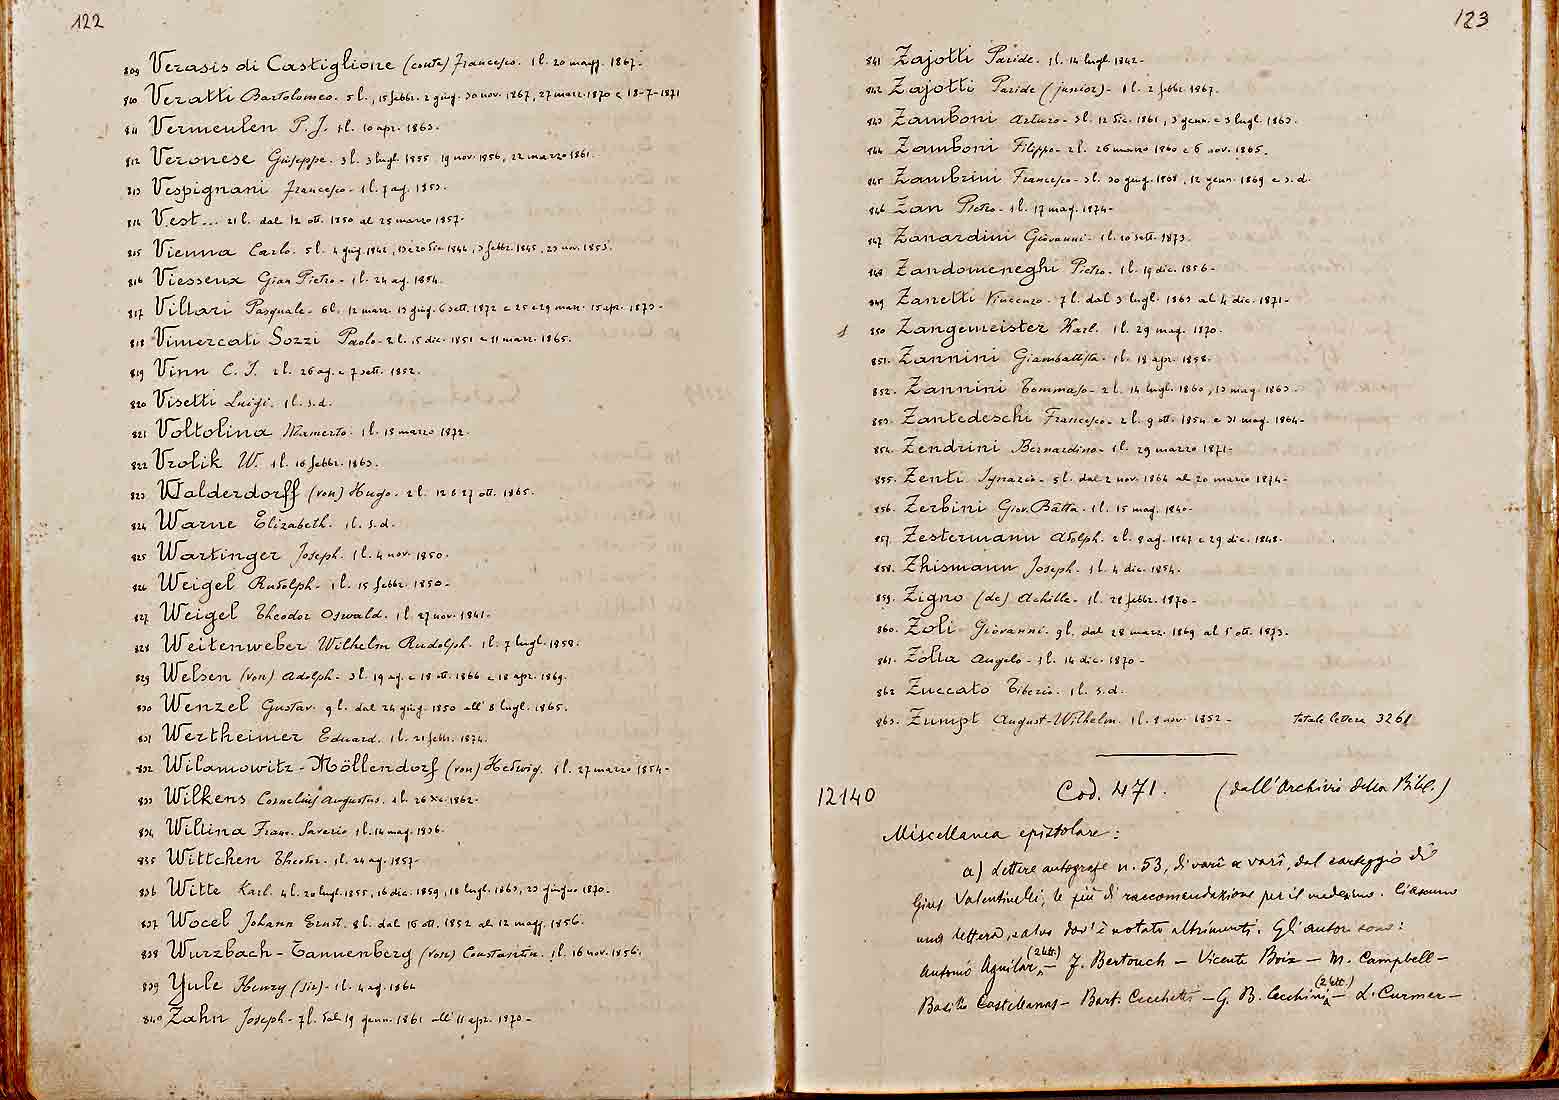 122
809 Verasis di Castiglione (conte) Francesco. 1 l. 20 magg. 1867.
810 Veratti Bartolomeo. 5 l., 15 febbr. 2 giug. 30 nov. 1867, 27 marz. 1870 e 18-7-1871
811 Vermeulen P. J. 1 l. 10 apr. 1863.
812 Veronese Giuseppe. 3 l. 3 lugl. 1855. 19 nov. 1856, 22 marzo 1861.
813 Vespignani Francesco - 1 l. 7 ag. 1853.
814 Vest... 21 l. dal 12 ott. 1850 al 25 marzo 1857.
815 Vienna Carlo. 5 l. 4 giug. 1842, 13 e 20 dic. 1844, 3 febbr. 1845, 23 nov. 1853.
816 Viesseux Gian Pietro - 1 l. 24 ag. 1854.
817 Villari Pasquale - 6 l. 12 marz. 13 giug. 6 sett. 1872 e 25 e 29 marz. 15 apr. 1873 -
818 Vimercati Sozzi Paolo - 2 l. 15 dic. 1851 e 11 marz. 1865.
819 Vinn C. J. 2 l. 26 ag. e 7 sett. 1852.
820 Visetti Luigi. 1 l. s.d.
821 Voltolina Mamerto. 1 l. 15 marzo 1872.
822 Vrolik W. 1 l. 16 febbr. 1863.
823 Walderdorff (von) Hugo - 2 l. 12 e 27 ott. 1865.
824 Warne Elizabeth. 1 l. s.d.
825 Wartinger Joseph. 1 l. 4 nov. 1850.
826 Weigel Rudolph - 1 l. 15 febbr. 1850 -
827 Weigel Theodor Oswald. 1 l. 27 nov. 1841.
828 Weitenweber Wilhelm Rudolph. 1 l. 7 lugl. 1858.
829 Welsen (von) Adolph - 3 l. 19 ag. e 18 ott. 1866 e 18 apr. 1869.
830 Wenzel Gustav. 9 l. dal 24 giug. 1850 all' 8 lugl. 1865.
831 Wertheimer Eduard. 1 l. 21 febbr. 1874.
832 Wilamowitz-Möllendorf (von) Hedwig. 1 l. 27 marzo 1854 -
833 Wilkens Cornelius Augustus. 1 l. 26 1862.
834 Wiltina Franc. Saverio 1 l. 14 mag. 1836.
835 Wittchen Theodor - 1 l. 24 ag. 1857.
836 Witte Karl. 4 l. 20 lugl. 1855, 16 dic. 1859, 18 lugl. 1863, 23 giugno 1870.
837 Wocel Johann Ernst. 8 l. dal 16 ott. 1852 al 12 magg. 1856.
838 Wurzbach-Tannenberg (von) Constantin. 1 l. 16 nov. 1856.
839 Yule Henry (Sir) - 1 l. 4 ag. 1864
840 Zahn Joseph - 7 l. dal 19 genn. 1861 all' 11 apr. 1870 -
123
841 Zajotti Paride - 1 l. 14 lugl. 1842 -
842 Zajotti Paride (junior) - 1 l. 2 febbr. 1867.
843 Zamboni Arturo - 3 l. 12 dic. 1861, 3 genn. e 3 lugl. 1863.
844 Zamboni Filippo - 2 l. 26 marzo 1860 e 6 nov. 1865.
845 Zambrini Francesco - 3 l. 30 giug. 1868, 12 genn. 1869 e s.d.
846 Zan Pietro - 1 l. 17 mag. 1874 -
847 Zanardini Giovanni - 1 l. 20 sett. 1873.
848 Zandomeneghi Pietro - 1 l. 19 dic. 1856 -
849 Zanetti Vincenzo - 7 l. dal 3 lugl. 1863 al 4 dic. 1871 -
850 Zangemeister Karl. 1 l. 29 mag. 1870.
851. Zannini Giambattista. 1 l. 18 apr. 1858.
852. Zannini Tommaso - 2 l. 14 lugl. 1860, 13 mag. 1863 -
853. Zantedeschi Francesco - 2 l. 9 ott. 1854 e 31 mag. 1864 -
854. Zendrini Bernardino - 1 l. 29 marzo 1871 -
855. Zenti Ignazio - 5 l. dal 2 nov. 1864 al 20 marzo 1874 -
856. Zerbini Giov. Batta - 1 l. 15 mag. 1840 -
857. Zestermann Adolph. 2 l. 8 ag. 1847 e 29 dic. 1848.
858. Zhismann Joseph. 1 l. 4 dic. 1854.
859. Zigno (de) Achille - 1 l. 28 febbr. 1870 -
860. Zoli Giovanni. 9 l. dal 28 marz. 1869 al 1° ott. 1873.
861. Zolia Angelo - 1 l. 14 dic. 1870 -
862 Zuccato Tiberio. 1 l. s.d.
863. Zumpt August-Wilhelm. 1 l. 8 nov. 1852 - totale lettere 3261
12140 Cod. 471. (dall'Archivio della Bibl.)
Miscellanea epistolare:
a) Lettere autografe n. 53, di varî a varî, dal carteggio di
Gius. Valentinelli, le più di raccomandazione per il medesimo. Ciascuno
una lettera, salvo dov'è notato altrimenti. Gli autori sono:
Antonio Aguilar (2 lett.) - J. Bertouch - Vicente Boix - M. Campbell -
Basilio Castellanos - Bart. Cecchetti - G. B. Cecchini (2 lett.) - L. Curmer -